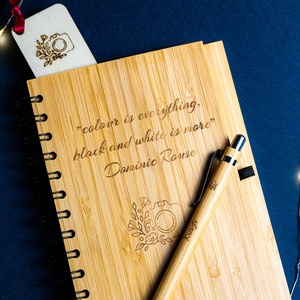 "colour is everything,
black and white is more"
Dominic Rouse